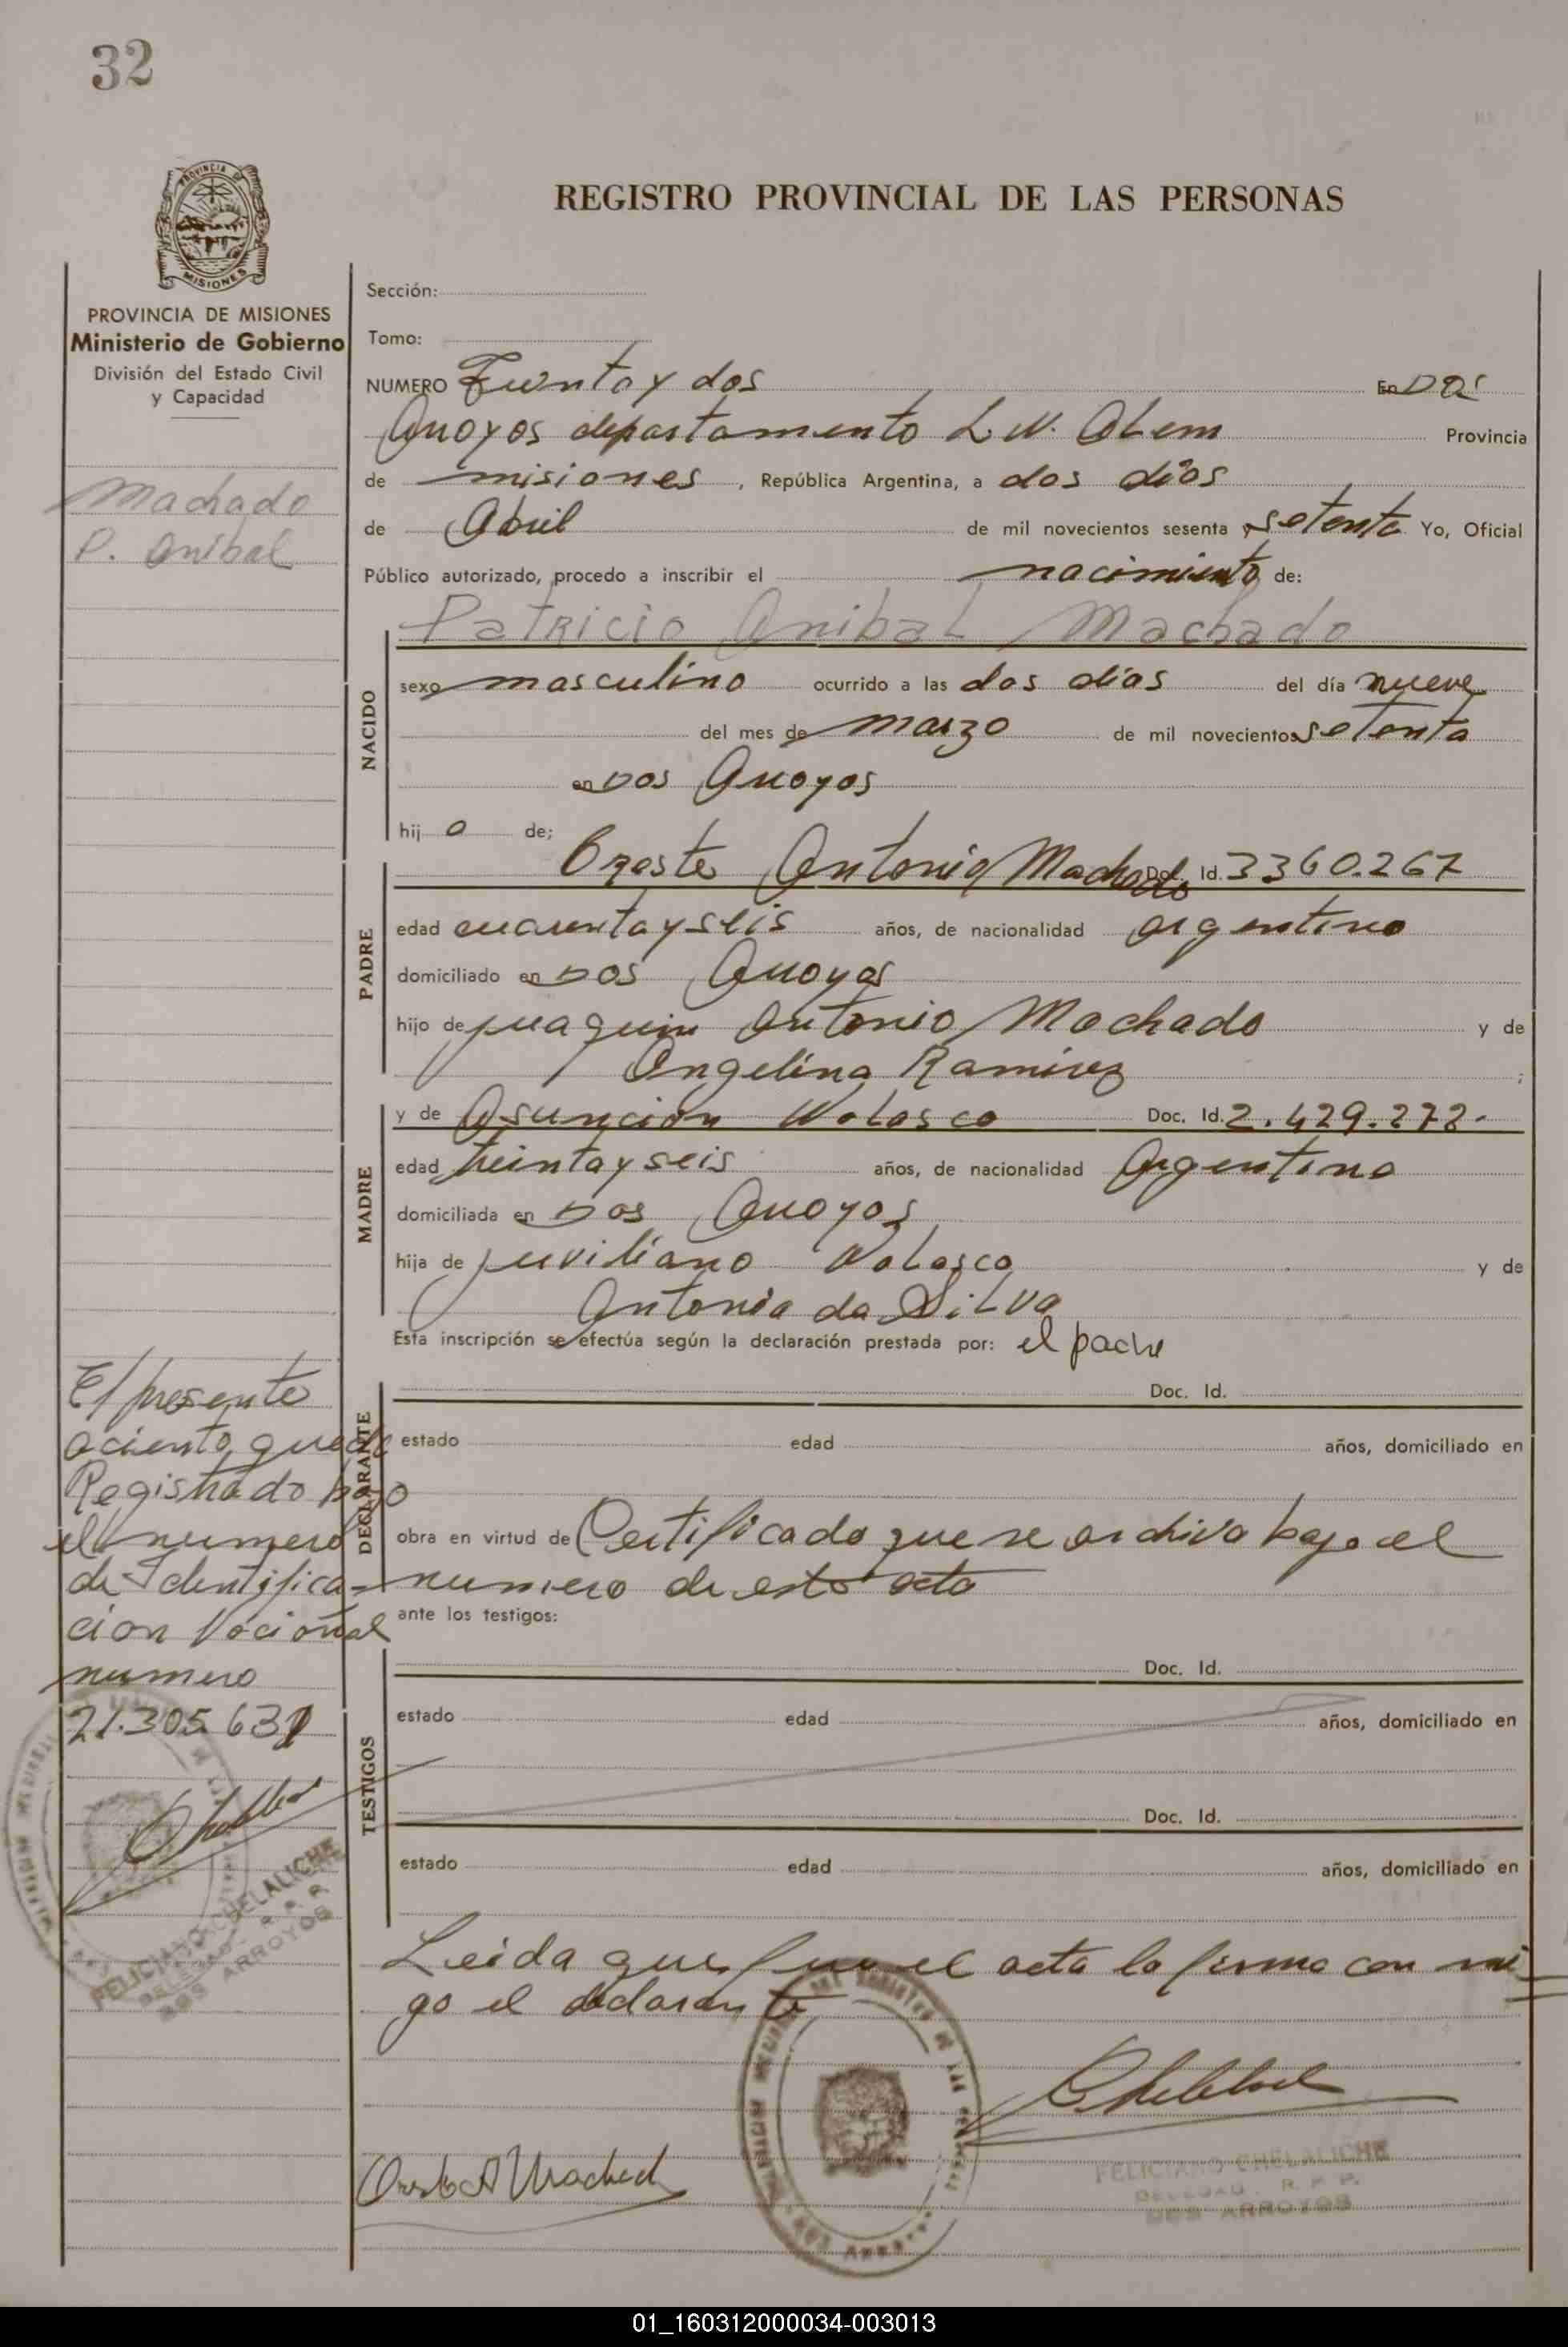 32
PROVINCIA DE
MISIONES
REGISTRO PROVINCIAL DE LAS PERSONAS
PROVINCIA DE MISIONES
Ministerio de Gobierno
División del Estado Civil
y Capacidad
Machado
P. Anibal
Sección:
Tomo:
NUMERO Treinta y dos En Dos
Arroyos departamento L. N. Alem Provincia
de misiones, República Argentina, a dos días
de Abril de mil novecientos sesenta y setenta Yo, Oficial
Público autorizado, procedo a inscribir el nacimiento de:
Patricio Anibal Machado
NACIDO
sexo masculino ocurrido a las dos días del día nueve
del mes de marzo de mil novecientos setenta
en Dos Arroyos
hij o de;
PADRE
Oreste Antonio Machado Doc. Id. 3360.267
edad cuarenta y seis años, de nacionalidad argentino
domiciliado en Dos Arroyos
hijo de juaquin Antonio Machado y de
Angelina Ramirez ;
MADRE
y de Asunción Volasco Doc. Id. 2.429.272.
edad treinta y seis años, de nacionalidad Argentina
domiciliada en Dos Arroyos
hija de juviliano Volasco y de
Antonia da Silva
Esta inscripción se efectúa según la declaración prestada por: el padre
DECLARANTE
Doc. Id.
estado edad años, domiciliado en
obra en virtud de Certificado que se archiva bajo el
numero de esta acta
ante los testigos:
TESTIGOS
Doc. Id.
estado edad años, domiciliado en
Doc. Id.
estado edad años, domiciliado en
Leida que fue el acta la firma con mi
go el declarante
El presente
aciento queda
Registrado bajo
el numero
de Identifica-
cion Nacional
numero
21.305.631
FELICIANO CHELALICHE
DELEGAD. R. P. P.
DOS ARROYOS
Oreste A Machad
FELICIANO CHELALICHE
DELEGAD. R. P. P.
DOS ARROYOS
01_160312000034-003013